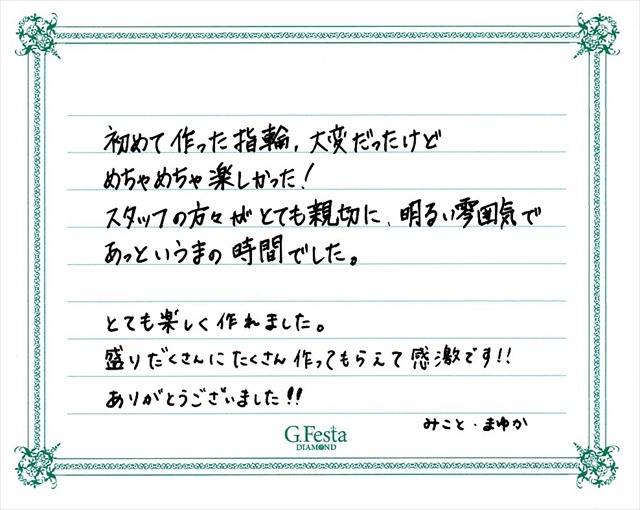 初めて作った指輪，大変だったけど
めちゃめちゃ楽しかった！
スタッフの方々がとても親切に、明るい雰囲気で
あっというまの時間でした。
とても楽しく作れました。
盛りだくさんにたくさん作ってもらえて感激です!!
ありがとうございました!!
みこと・まゆか
G.Festa
DIAMOND